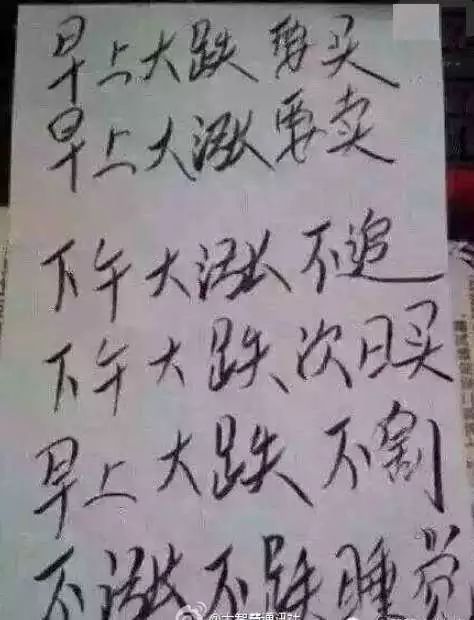 早上大跌要买
早上大涨要卖
下午大涨不追
下午大跌次日买
早上大跌不割
不涨不跌睡觉